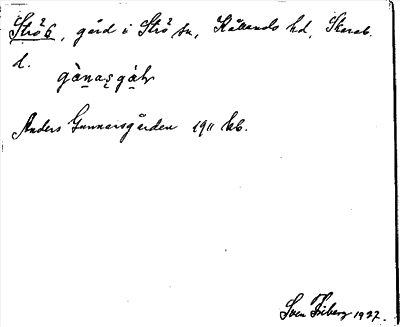 Strö 6, gård i Strö sn, Kållands hd, Skarab.
l.
gànasgàɫ
Anders Gunnarsgården 1911 kb.
Sven Friberg 1927.